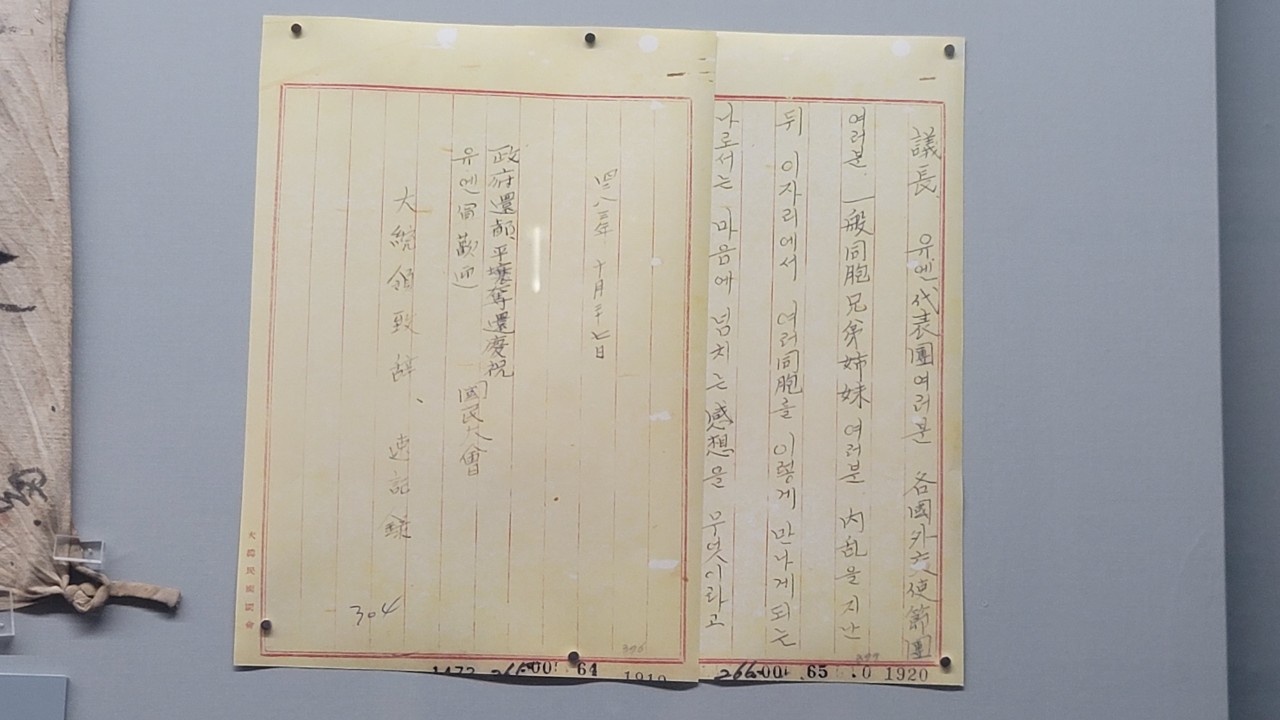 四二八三年 十月二十七日
政府還都、平壤奪還慶祝
유엔군歡迎) 國民大會
大統領致辞、速記錄
304
大韓民國國會
266-00 64 1919
一
議長, 유엔代表團여러분 各國外交使節團
여러분, 一般同胞兄弟姉妹 여러분 内乱을 지난
뒤 이자리에서 여러同胞를 이렇게 만나게되는
나로서는 마음에 넘치는 感想을 무엇이라고
266-00 65 .0 1920